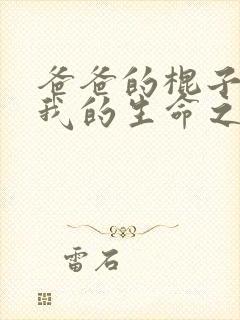 爸爸的棍子
我的生命之
雷石